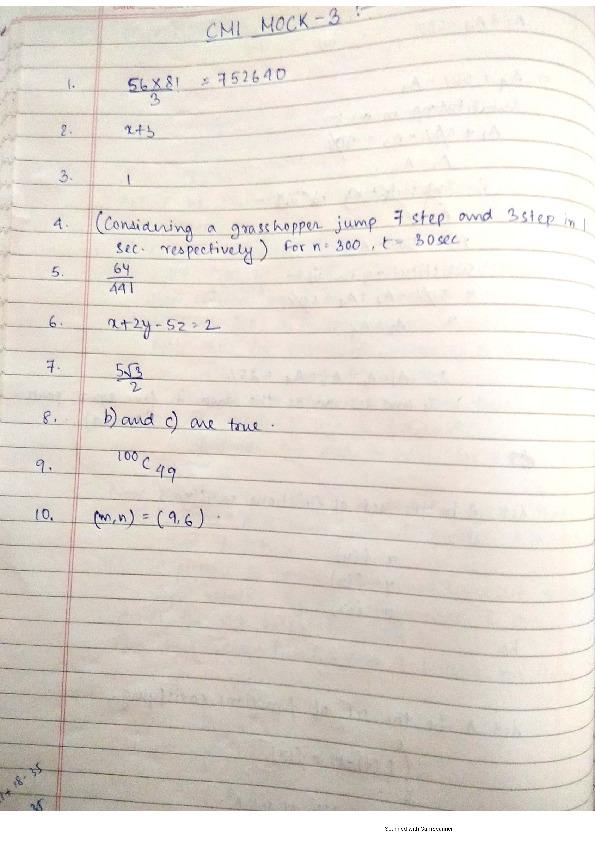 CMI MOCK-3 :-
1. 56 × 8! / 3 = 752640
2. x+3
3. 1
4. (Considering a grasshopper jump 7 step and 3 step in 1
sec. respectively) For n = 300, t = 30 sec.
5. 64/441
6. x+2y-5z=2
7. 5√3/2
8. b) and c) are true.
9. ¹⁰⁰C₄₉
10. (m,n) = (9,6).
18.35
35